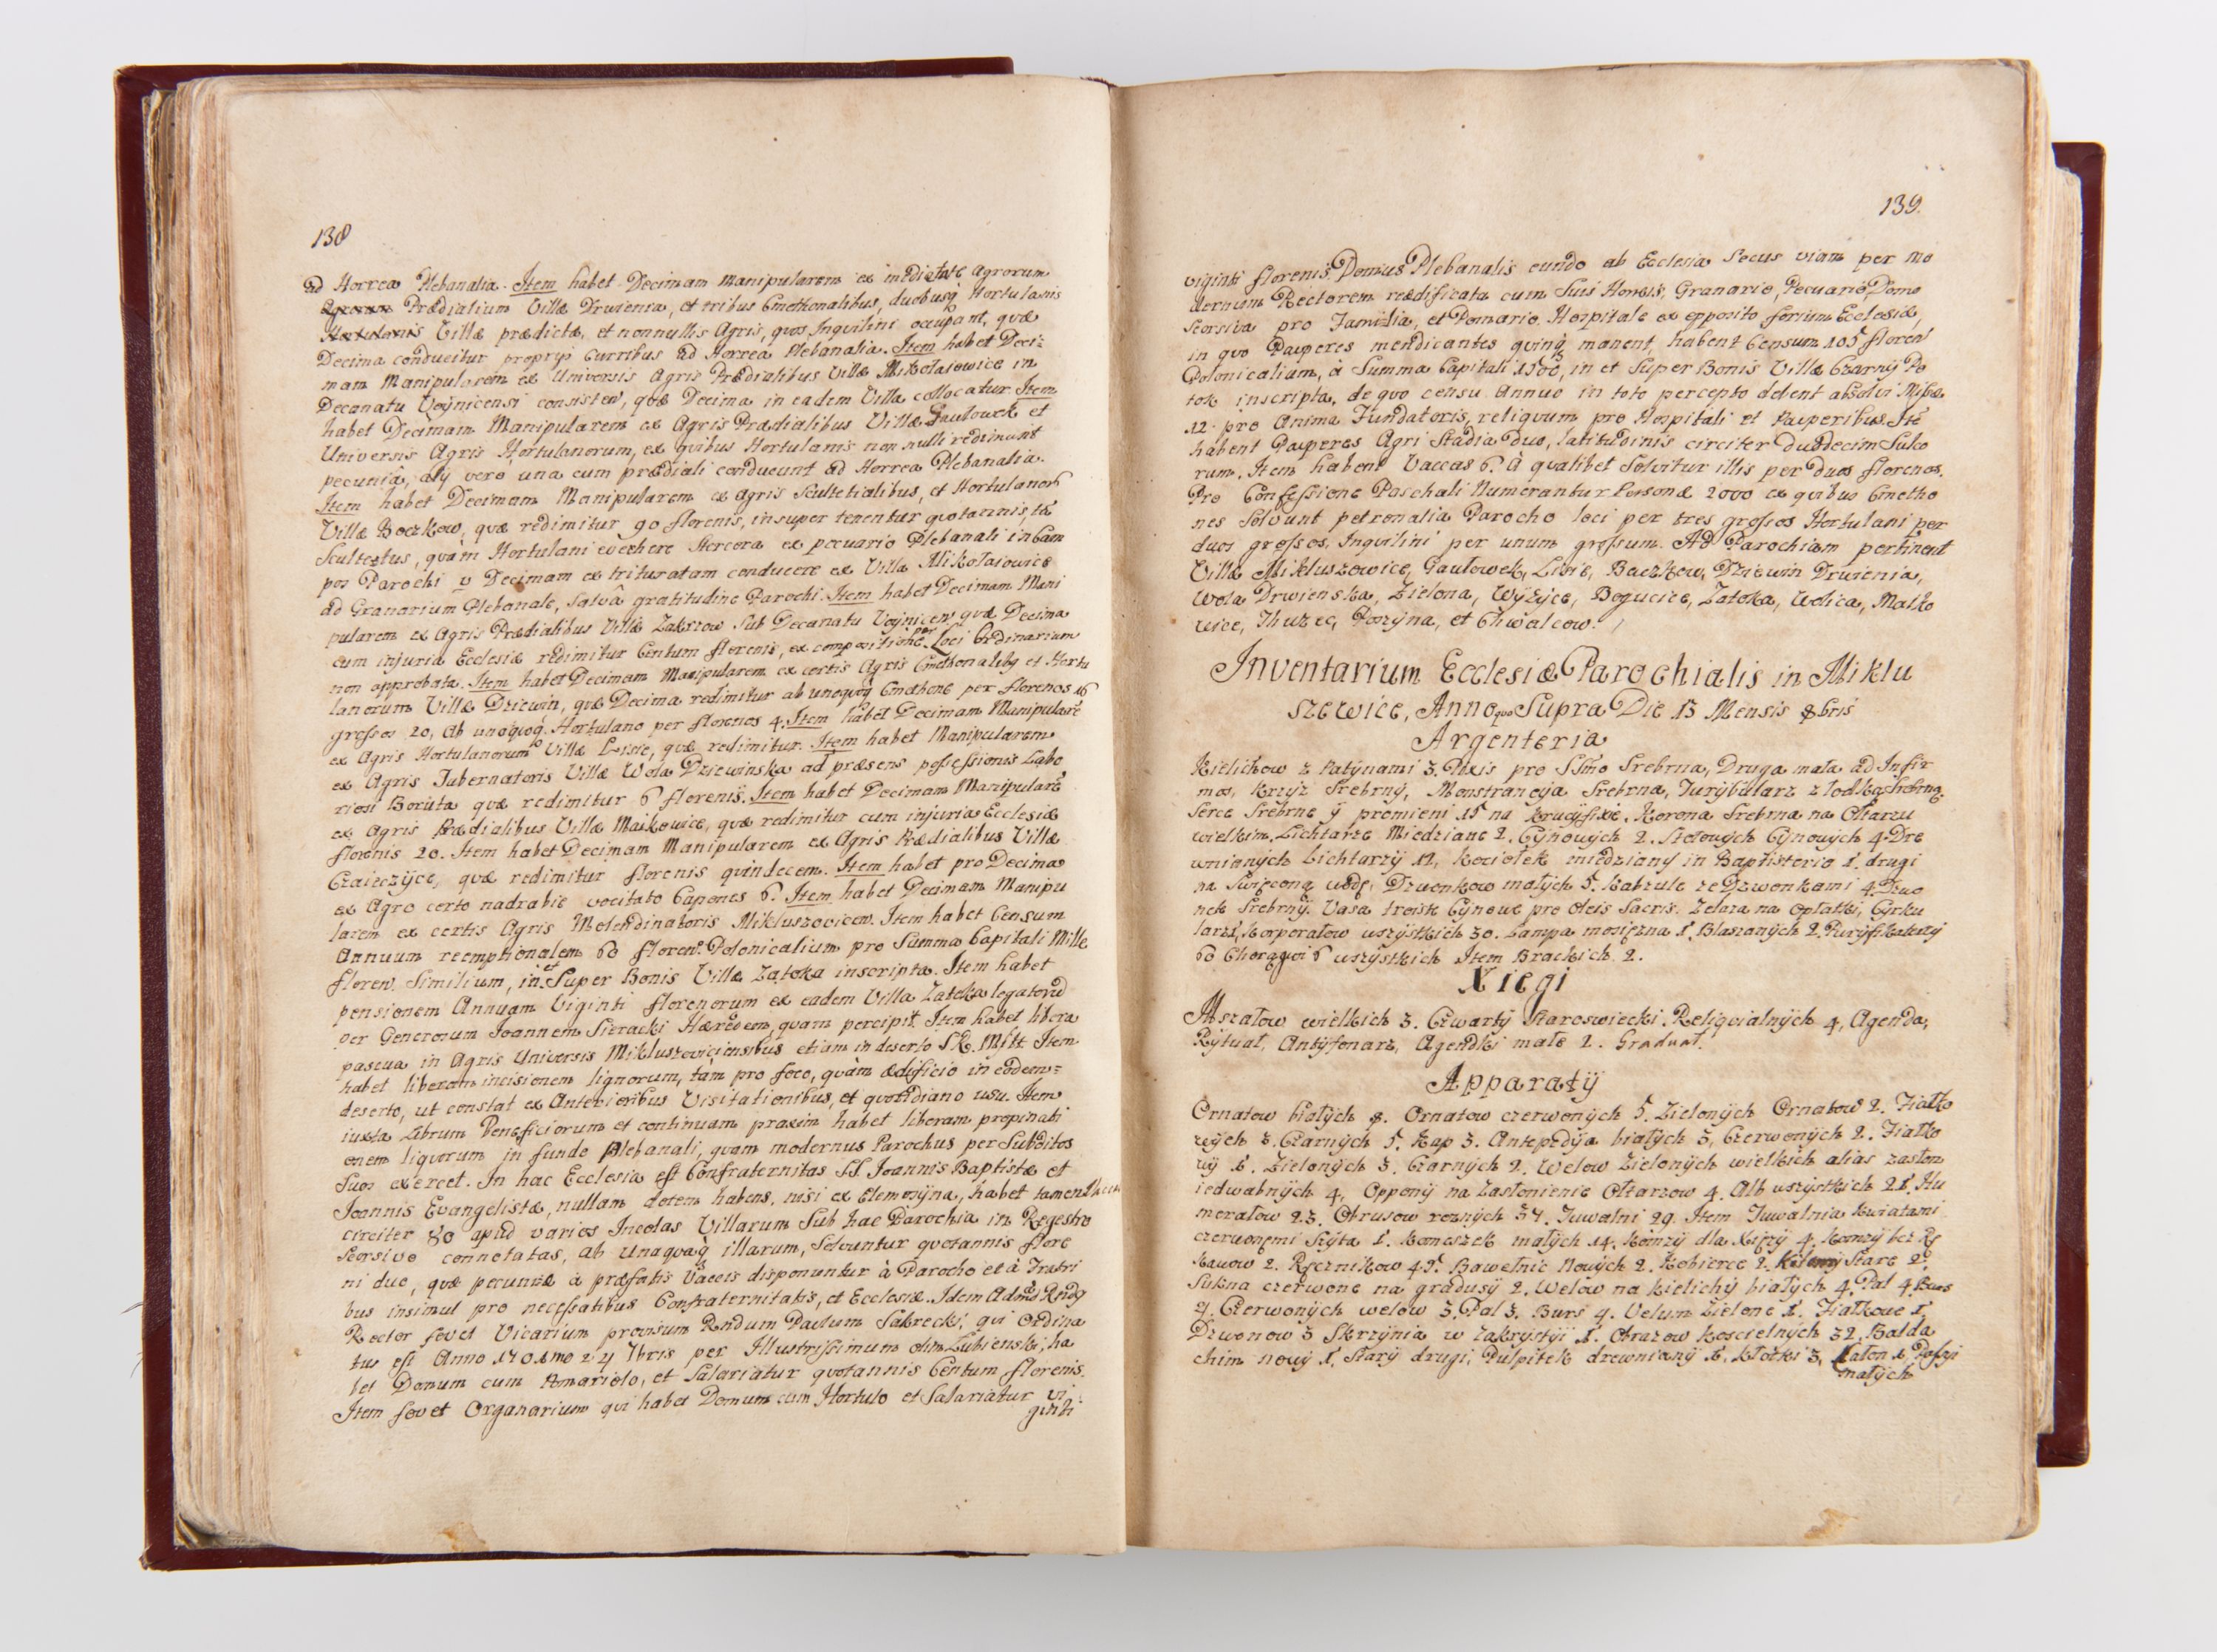 138
ad Horrea Plebanalia. Item habet Decimam Manipularem ex medietate Agrorum
Prædialium Villæ Drwienia, et tribus Cmethonalibus, duobusq Hortulanis
Villæ prædictæ, et nonnullis Agris, quos Inquilini occupant, quæ
Decima conducitur proprys Curribus ad Horrea Plebanalia. Item habet Deci-
mam Manipularem ex Universis Agris Prædialibus Villæ Mikołaiowice in
Decanatu Voynicensi consisten, quæ Decima in eadem Villa collocatur. Item
habet Decimam Manipularem ex Agris Prædialibus Villæ Gawłowek et
Universis Agris Hortulanorum, ex quibus Hortulanis non nulli redimunt
pecuniâ, aly vero una cum prædiali conducunt ad Horrea Plebanalia.
Item habet Decimam Manipularem ex Agris Scultetialibus, et Hortulanor
Villæ Boczkow, quæ redimitur 90 florenis, insuper tenentur quotannis tã
Scultetus, quàm Hortulani evechere Stercora ex pecuario Plebanali in Cam
pos Parochi y Decimam ex trituratam conducere ex Villa Mikołaiowice
ad Granarium Plebanale, salvâ gratitudine Parochi. Item habet Decimam Mani
pularem ex Agris Prædialibus Villæ Zakrzow Sub Decanatu Voynicen quæ Decima
cum injuria Ecclesiæ redimitur Centum florenis, ex compositione per Loci Ordinarium
non approbata. Item habet Decimam Manipularem ex certis Agris Cmethonalibq et Hortu
lanorum Villæ Dziewin, quæ Decima redimitur ab unoquoq Cmethone per florenos 16
grossos 20, Ab unoquoq Hortulano per florenos 4. Item habet Decimam Manipularẽ
ex Agris Hortulanorum Villæ Lisie, quæ redimitur. Item habet Manipularem
ex Agris Tabernatoris Villæ Wola Dziewinska ad præsens possessionis Labo
riosi Boruta quæ redimitur 6 florenis. Item habet Decimam Manipularẽ
ex Agris Prædialibus Villæ Maikowice, quæ redimitur cum injuria Ecclesiæ
florenis 20. Item habet Decimam Manipularem ex Agris Prædialibus Villæ
quæ redimitur florenis quindecem. Item habet pro Decima
ex Agro certo nadrabie vocitato Capones 6. Item habet Decimam Manipu
larem ex certis Agris Molendinatoris Mikluszovicen. Item habet Censum
Annuum reemptionalem 60 floren. Polonicalium pro Summa Capitali Mille
floren. Similium, in et Super Bonis Villæ Zatoka inscripta. Item habet
pensionem Annuam Viginti florenorum ex eadem Villa Zatoka legatorũ
per Generosum Joannem Sieracki Hæredem, quam percipit. Item habet libera
pascua in Agris Universis Mikluszoviciensibus etiam in deserto S. R. Mtt Item
habet liberam incisionem lignorum, tàm pro foco, quàm ædificio in eodem=
deserto, ut constat ex Anterioribus Visitationibus, et quotidiano usu. Item
iuxta Librum Beneficiorum et continuam praxim habet liberam propinati
onem liquorum in fundo Plebanali, quam modernus Parochus per Subditos
Suos exercet. In hac Ecclesia est Confraternitas SS. Joannis Baptistæ et
Joannis Evangelistæ, nullam dotem habens, nisi ex elemosyna, habet tamen Vaccas
circiter 80 apud varios Incolas Villarum Sub hac Parochia in Regestro
Seorsivo connotatas, ab unaquaq illarum, Solvuntur quotannis flore
ni duo, quæ pecuniæ à præfatis Vaccis disponuntur à Parocho et à Fratri
bus insimul pro necessitatibus Confraternitatis, et Ecclesiæ. Idem Admo Rndg
Rector fovet Vicarium provisum Rndum Paulum Sakrecki, qui Ordina
tus est Anno 1701mo 24 7bris per Illustrissimum olim Łubienski, ha
bet Domum cum Pomariolo, et Salariatur quotannis Centum florenis.
Item fovet Organarium qui habet Domum cum Hortulo et Salariatur vi-
ginti
139.
viginti florenis. Domus Plebanalis eundo ab Ecclesia Secus viam per Mo
dernum Rectorem reædificata cum Suis Horreis, Granario, Pecuario, Domo
Seorsiva pro Familia, et Pomario. Hospitale ex opposito forium Ecclesiæ,
in quo Pauperes mendicantes quinq manent, habent Censum 105 floren
Polonicalium, à Summa Capitali 1500, in et Super Bonis Villæ Czarny Po
tok inscripta, de quo censu Annuo in toto percepto debent absolvi Missæ
12. pro Anima Fundatoris, reliquum pro Hospitali et Pauperibus. Itẽ
habent Pauperes Agri Stadia duo, latitudinis circiter duodecim Sulco
rum. Item habent Vaccas 6. à qualibet Solvitur illis per duos florenos.
Pro Confessione Paschali Numerantur Personæ 2000 ex quibus Cmetho
nes Solvunt petronalia Parocho loci per tres grossos Hortulani per
duos grossos, Inquilini per unum grossum. Ad Parochiam pertinent
Villæ Mikluszowice, Gawłowek, Lisie, Baczkow, Dziewin Drwienia,
Wola Drwienska, Zielona, Wyżyce, Bogucice, Zatoka, Wolica, Maiko
wice, et Chwalcow.
Inventarium Ecclesiæ Parochialis in Miklu
szewice, Anno quo Supra Die 13 Mensis 8bris
Argenteria
Kielichow z Patynami 3. Puxis pro SSmo Srebrna, Druga mała ad Infir
mos, Krzyż Srebrny, Monstrancyja Srebrna, Turybularz z łodką Srebrną.
Serce Srebrne y promieni 15 na krucyfixie. Korona Srebrna na Ołtarzu
wielkim. Lichtarze Miedziane 2. Cynowych 2. Stołowych Cynowych 4. Dre
wnianych Lichtarzy 12, kociołek miedziany in Baptisterio 1. drugi
na Swięconą wodę. Dzwonkow małych 5. Kabzule ze Dzwonkami 4. Dzwo
nek Srebrny. Vasa troiste Cynowe pro Oleis Sacris. Zelaza na Opłatki, Cyrku
larz 1. Korporałow wszystkich 30. Lampa mosiężna 1. Blaszanych 2. Puryfikaterzy
60 Chorągwi 6 wszystkich Item Brackich 2.
Xiegi
Mszałow wielkich 3. Czwarty Staroswiecki. Reliquialnych 4, Agenda,
Rytuał, Antyfonarz, Agendki małe 2. Graduał.
Apparaty
Ornatow białych 8. Ornatow czerwonych 5. Zielonych Ornatow 2. Fiałko
wych 3. Czarnych 5. Kap 3. Antepedya białych 3, Czerwonych 2. Fiałko
wy 1. Zielonych 3. Czarnych 2. Welow Zielonych wielkich alias zasłon
iedwabnych 4, Oppony na Zasłonienie Ołtarzow 4. Alb wszystkich 21. Hu
merałow 23. Obrusow roznych 34. Tuwalni 29. Item Tuwalnia kwiatami
czerwonemi Szyta 1. Komeszek małych 14. Komży dla Xięży 4. Komży bez Rę
kawow 2. Ręcznikow 45. Bawełnic Nowych 2. Kobierce 2. Stare 2.
Sukna czerwone na gradusy 2. Welow na kielichy białych 4. Pal 4. Burs
4. Czerwonych welow 3. Pal 3. Burs 4. Velum Zielone 1. Fiałkowe 1.
Dzwonow 3 Skrzynia w Zakrystyi 1. Obrazow koscielnych 32. Balda
chim nowy 1. Stary drugi, Pulpitek drewniany 1. Kłotki 3,
małych